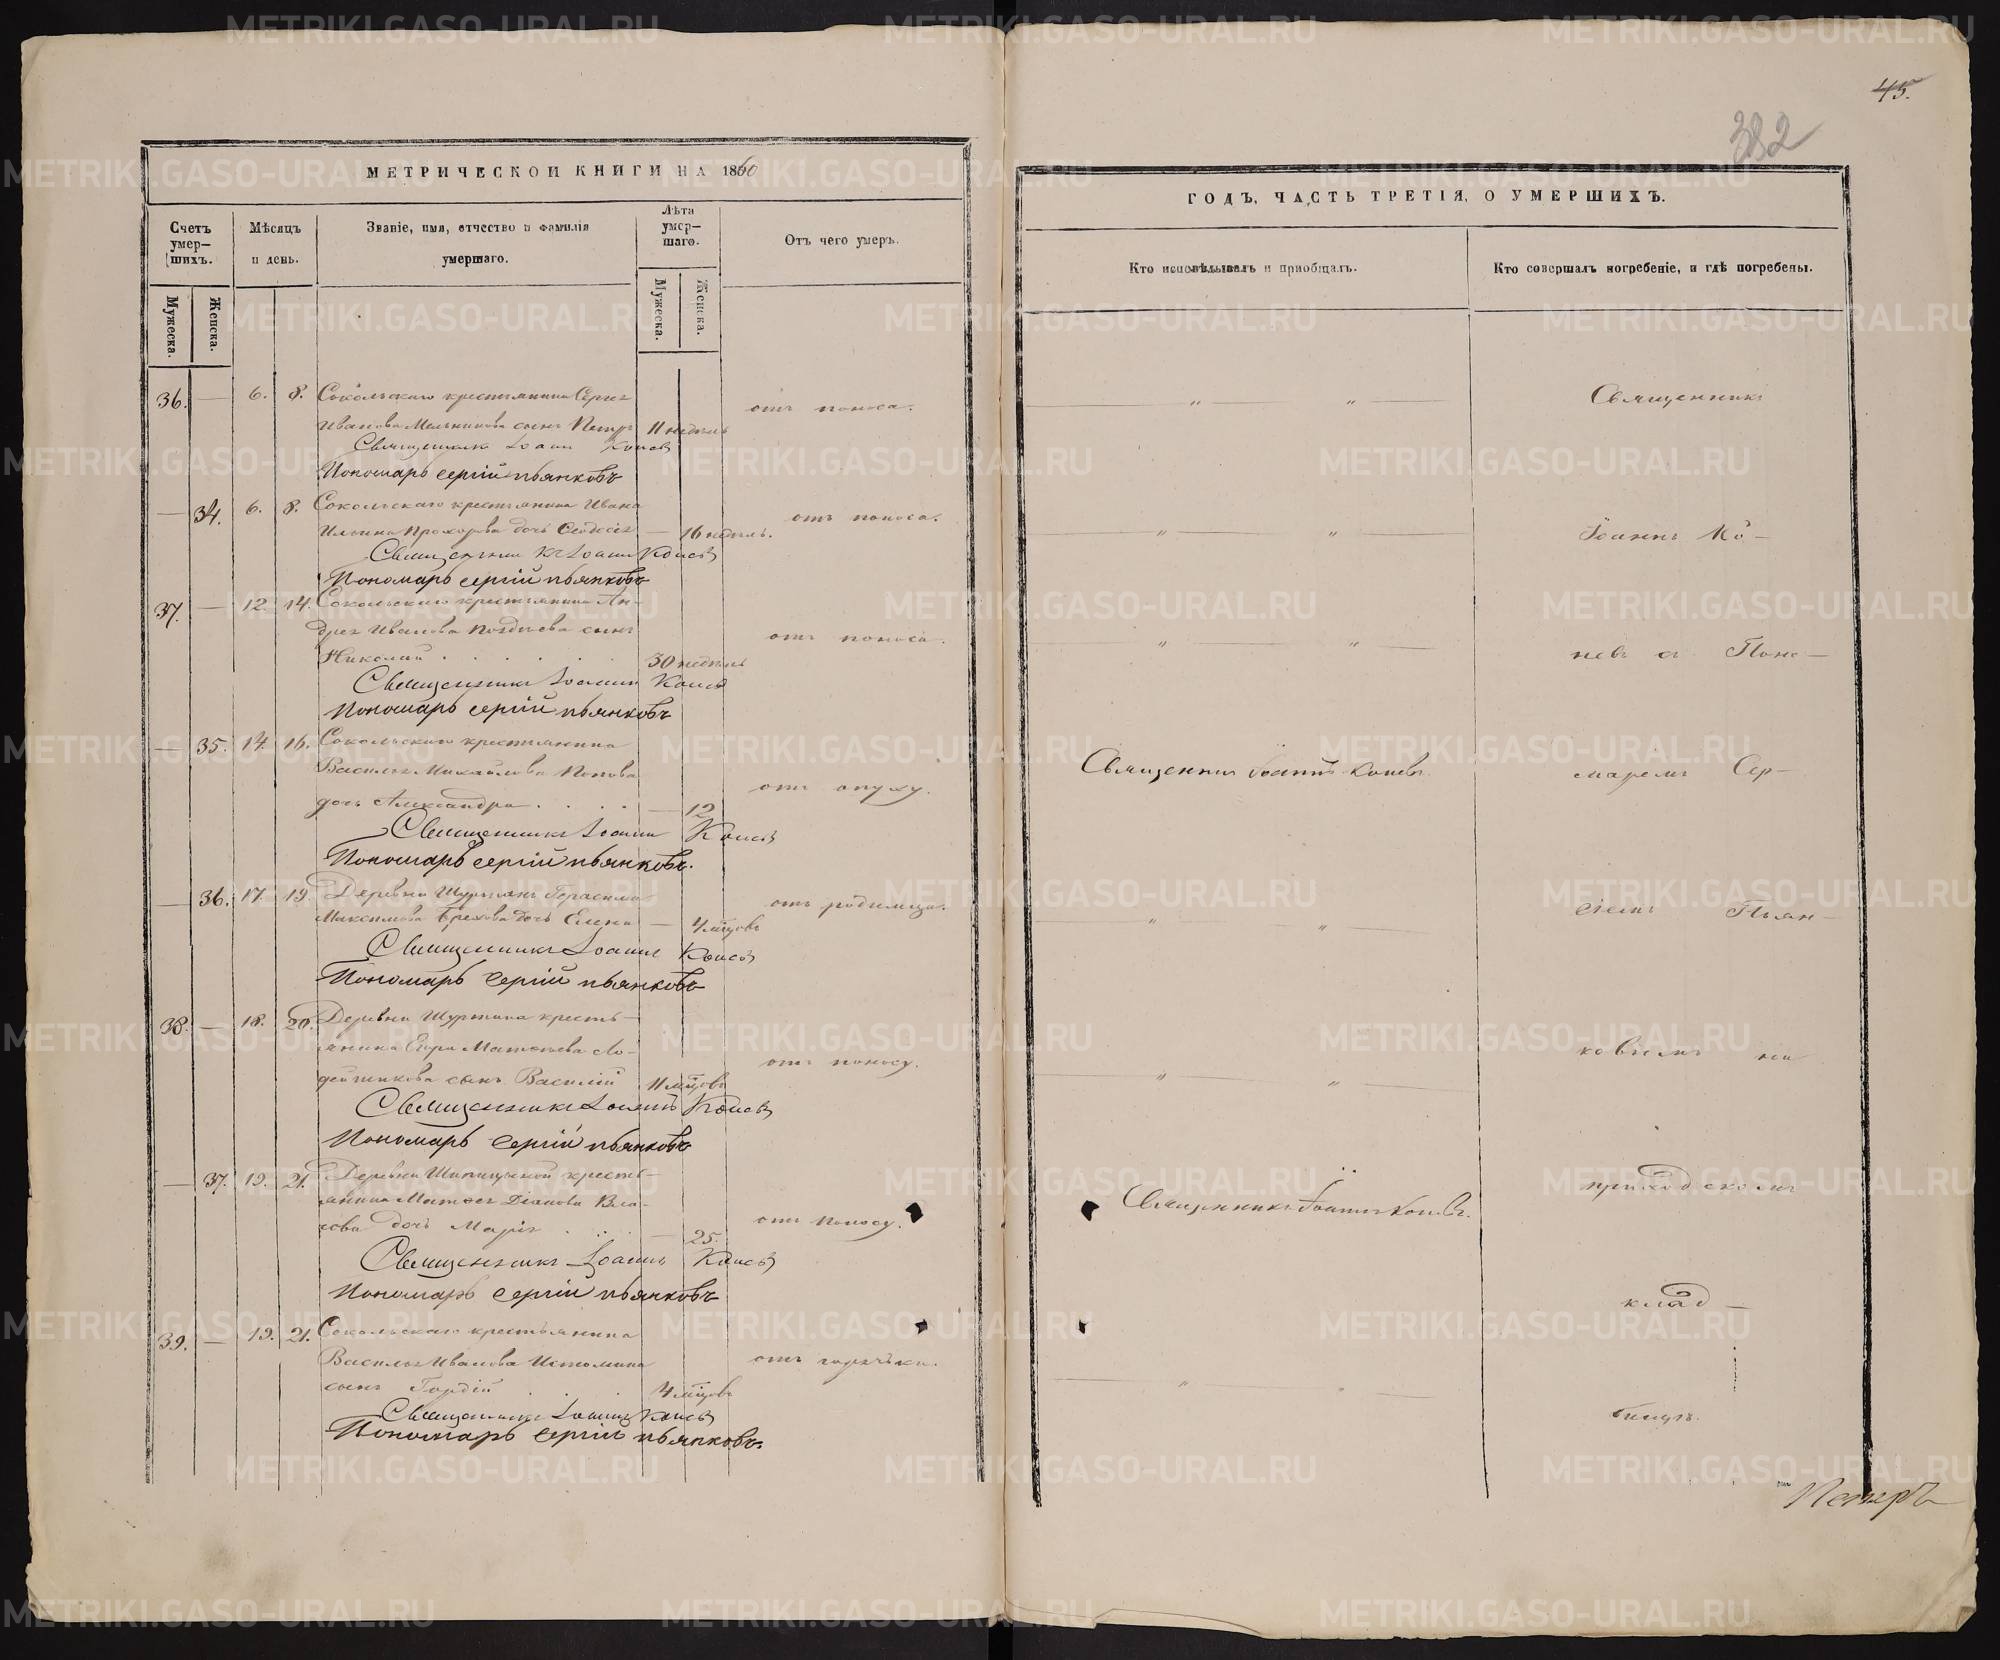 45.
382
МЕТРИЧЕСКОЙ КНИГИ НА 1860
ГОДЪ, ЧАСТЬ ТРЕТІЯ, О УМЕРШИХЪ.
Счетъ умер-
шихъ.
Мѣсяцъ
и день.
Званіе, имя, отчество и фамилія
умершаго.
Лѣта
умер-
шаго.
Отъ чего умеръ.
Кто исповѣдывалъ и пріобщалъ.
Кто совершалъ погребеніе, и гдѣ погребены.
Мужеска.
Женска.
Мужеска.
Женска.
36. — 6. 8. Сокольскаго крестьянина Сергея
Иванова Мельникова сынъ Петръ 11 недѣль
отъ поноса.
Священникъ Іоаннъ Коневъ
Пономарь Сергій Пьянковъ
— 34. 6. 8. Сокольскаго крестьянина Ивана
Ильина Прохорова дочь Ѳеодосея — 16 недѣль.
отъ поноса.
Священникъ Іоаннъ Коневъ
Пономарь Сергій Пьянковъ
37. — 12. 14. Сокольскаго крестьянина Ан-
дрея Иванова Позднева сынъ
Николай 30 недѣль
отъ поноса.
Священникъ Іоаннъ Коневъ
Пономарь Сергій Пьянковъ
— 35. 14. 16. Сокольскаго крестьянина
Василья Михайлова Попова
дочь Александра — 12
отъ опуху.
Священникъ Іоаннъ Коневъ
Пономарь Сергій Пьянковъ.
— 36. 17. 19. Деревни Герасима
Максимова дочь Елена — 4 мѣсцовъ
отъ родимца.
Священникъ Іоаннъ Коневъ
Пономарь Сергій Пьянковъ
38. — 18. 20. Деревни кресть-
янина Егора Матѳеева Ло-
дейщикова сынъ Василій 11 мѣсцовъ
отъ поносу.
Священникъ Іоаннъ Коневъ
Пономарь Сергій Пьянковъ
— 37. 19. 21. Деревни Шипицыной кресть-
янина Матѳея Діанова Вла-
сова дочь Марія — 25.
отъ поносу.
Священникъ Іоаннъ Коневъ
Пономарь Сергій Пьянковъ
39. — 19. 21. Сокольскаго крестьянина
Василья Иванова Истомина
сынъ Гордій 4 мѣсцовъ
отъ горячьки.
Священникъ Іоаннъ Коневъ
Пономарь Сергій Пьянковъ.
Священникъ Іоаннъ Коневъ.
Священникъ Іоаннъ Коневъ.
Священникъ
Іоаннъ Ко-
невъ съ Поно-
маремъ Сер-
гіемъ Пьян-
ковымъ на
приходскомъ
клад-
бищѣ.
METRIKI.GASO-URAL.RU